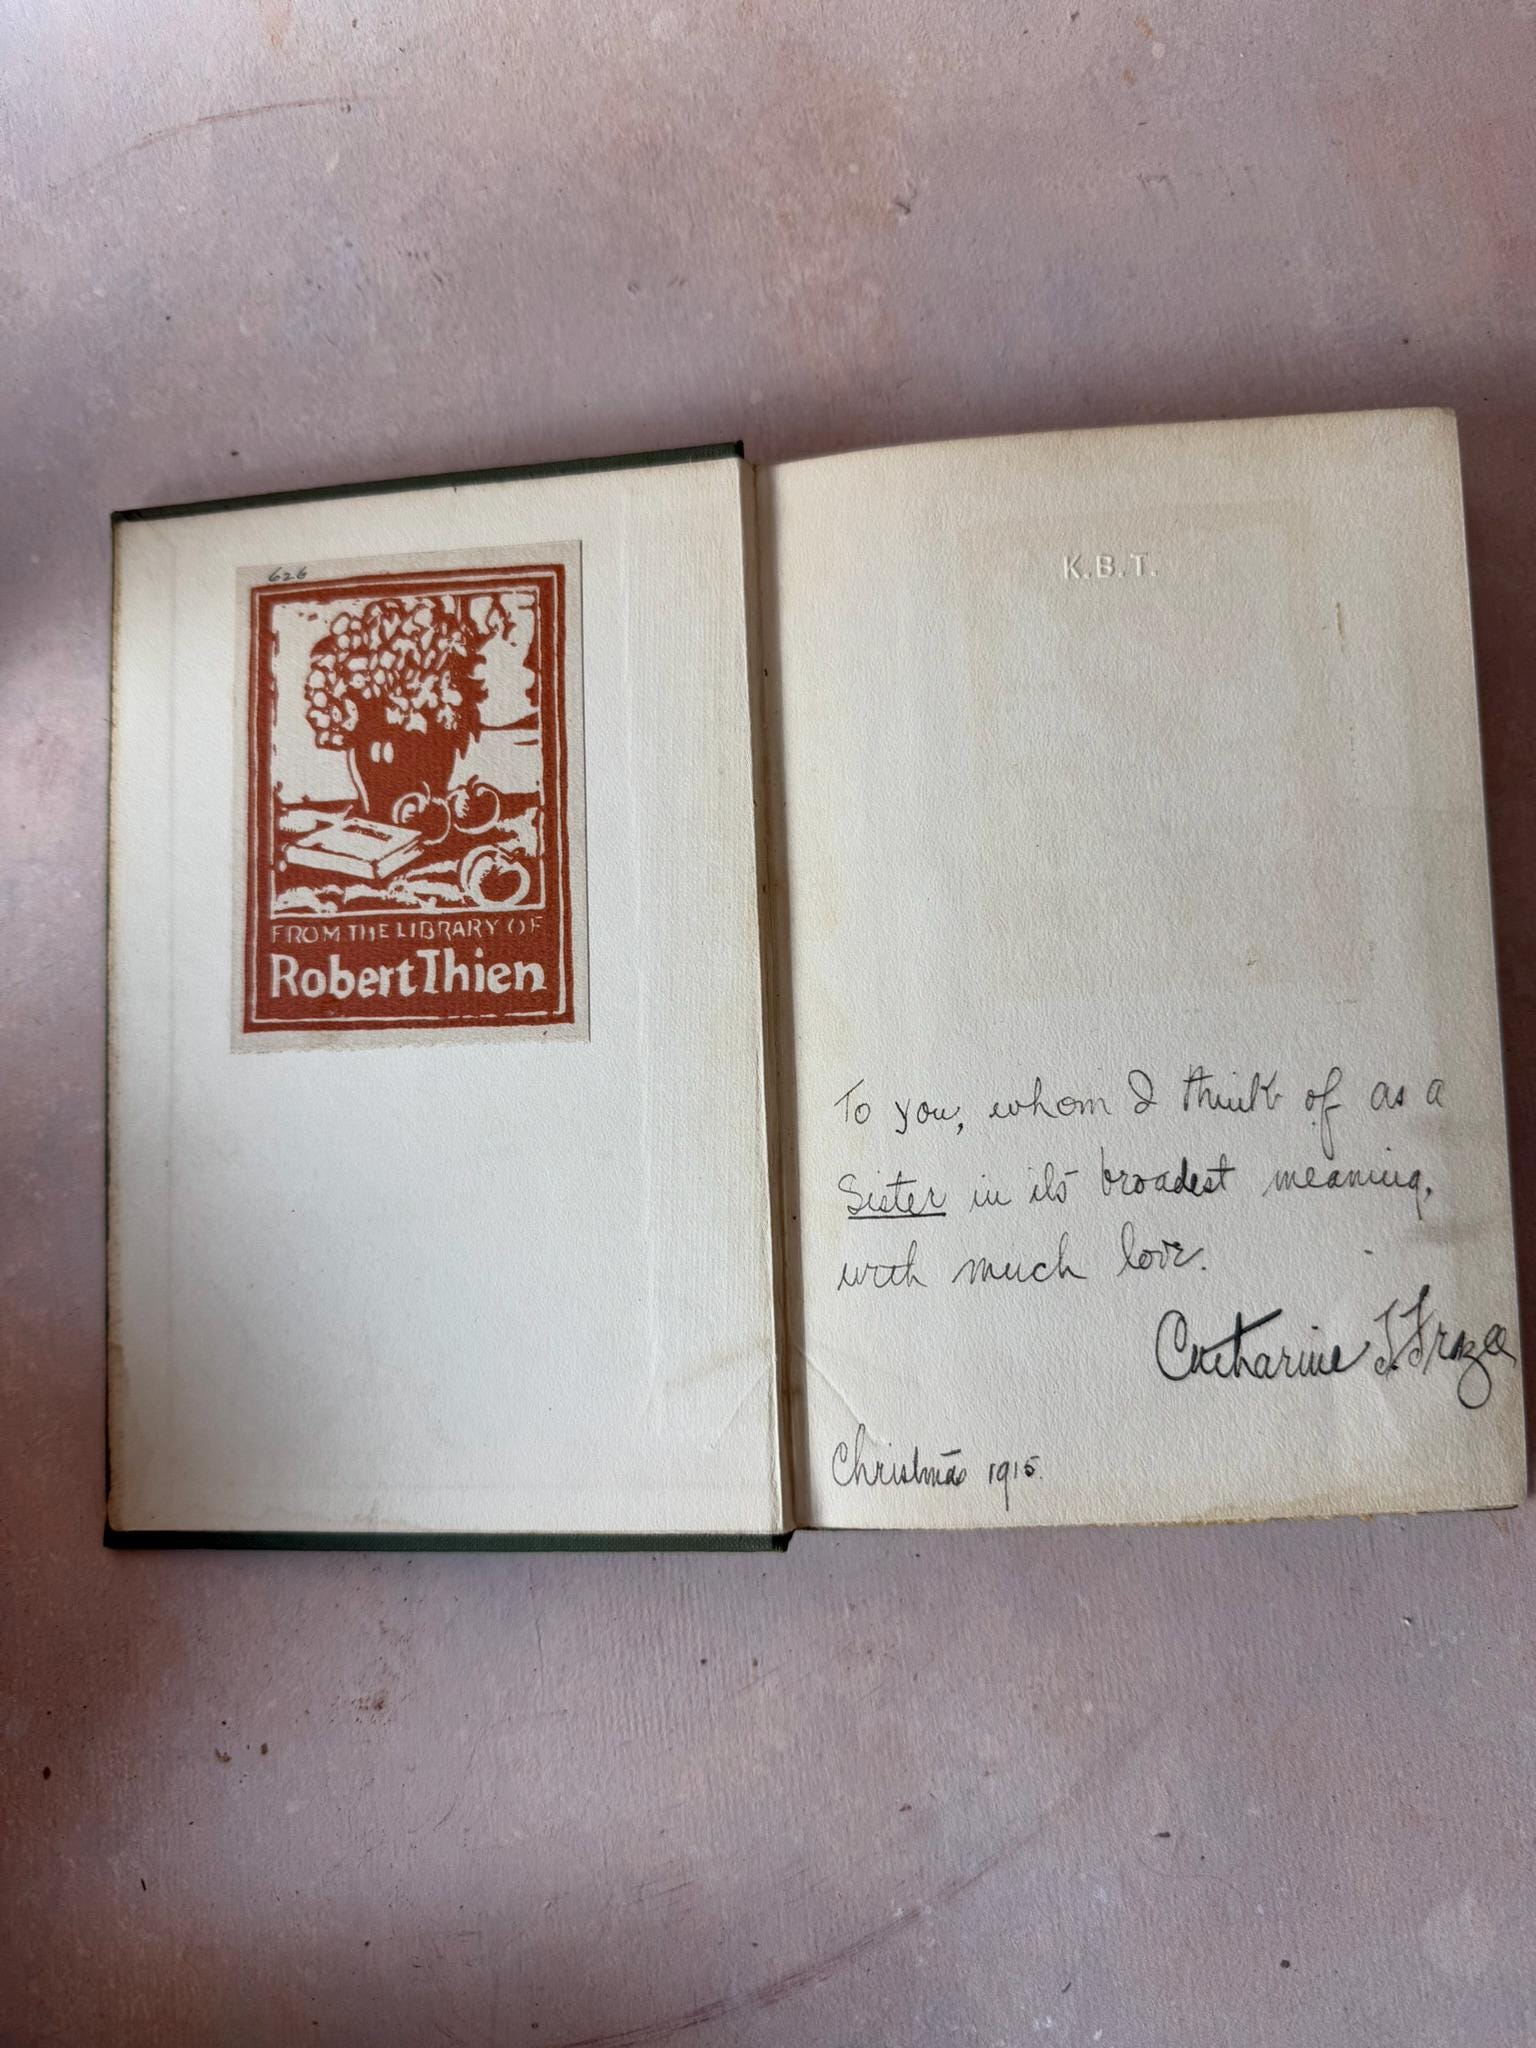 626
FROM THE LIBRARY OF
Robert Thien
K.B.T.
To you, whom I think of as a
Sister in its broadest meaning,
with much love.
Catharine T. Frazee
Christmas 1915.